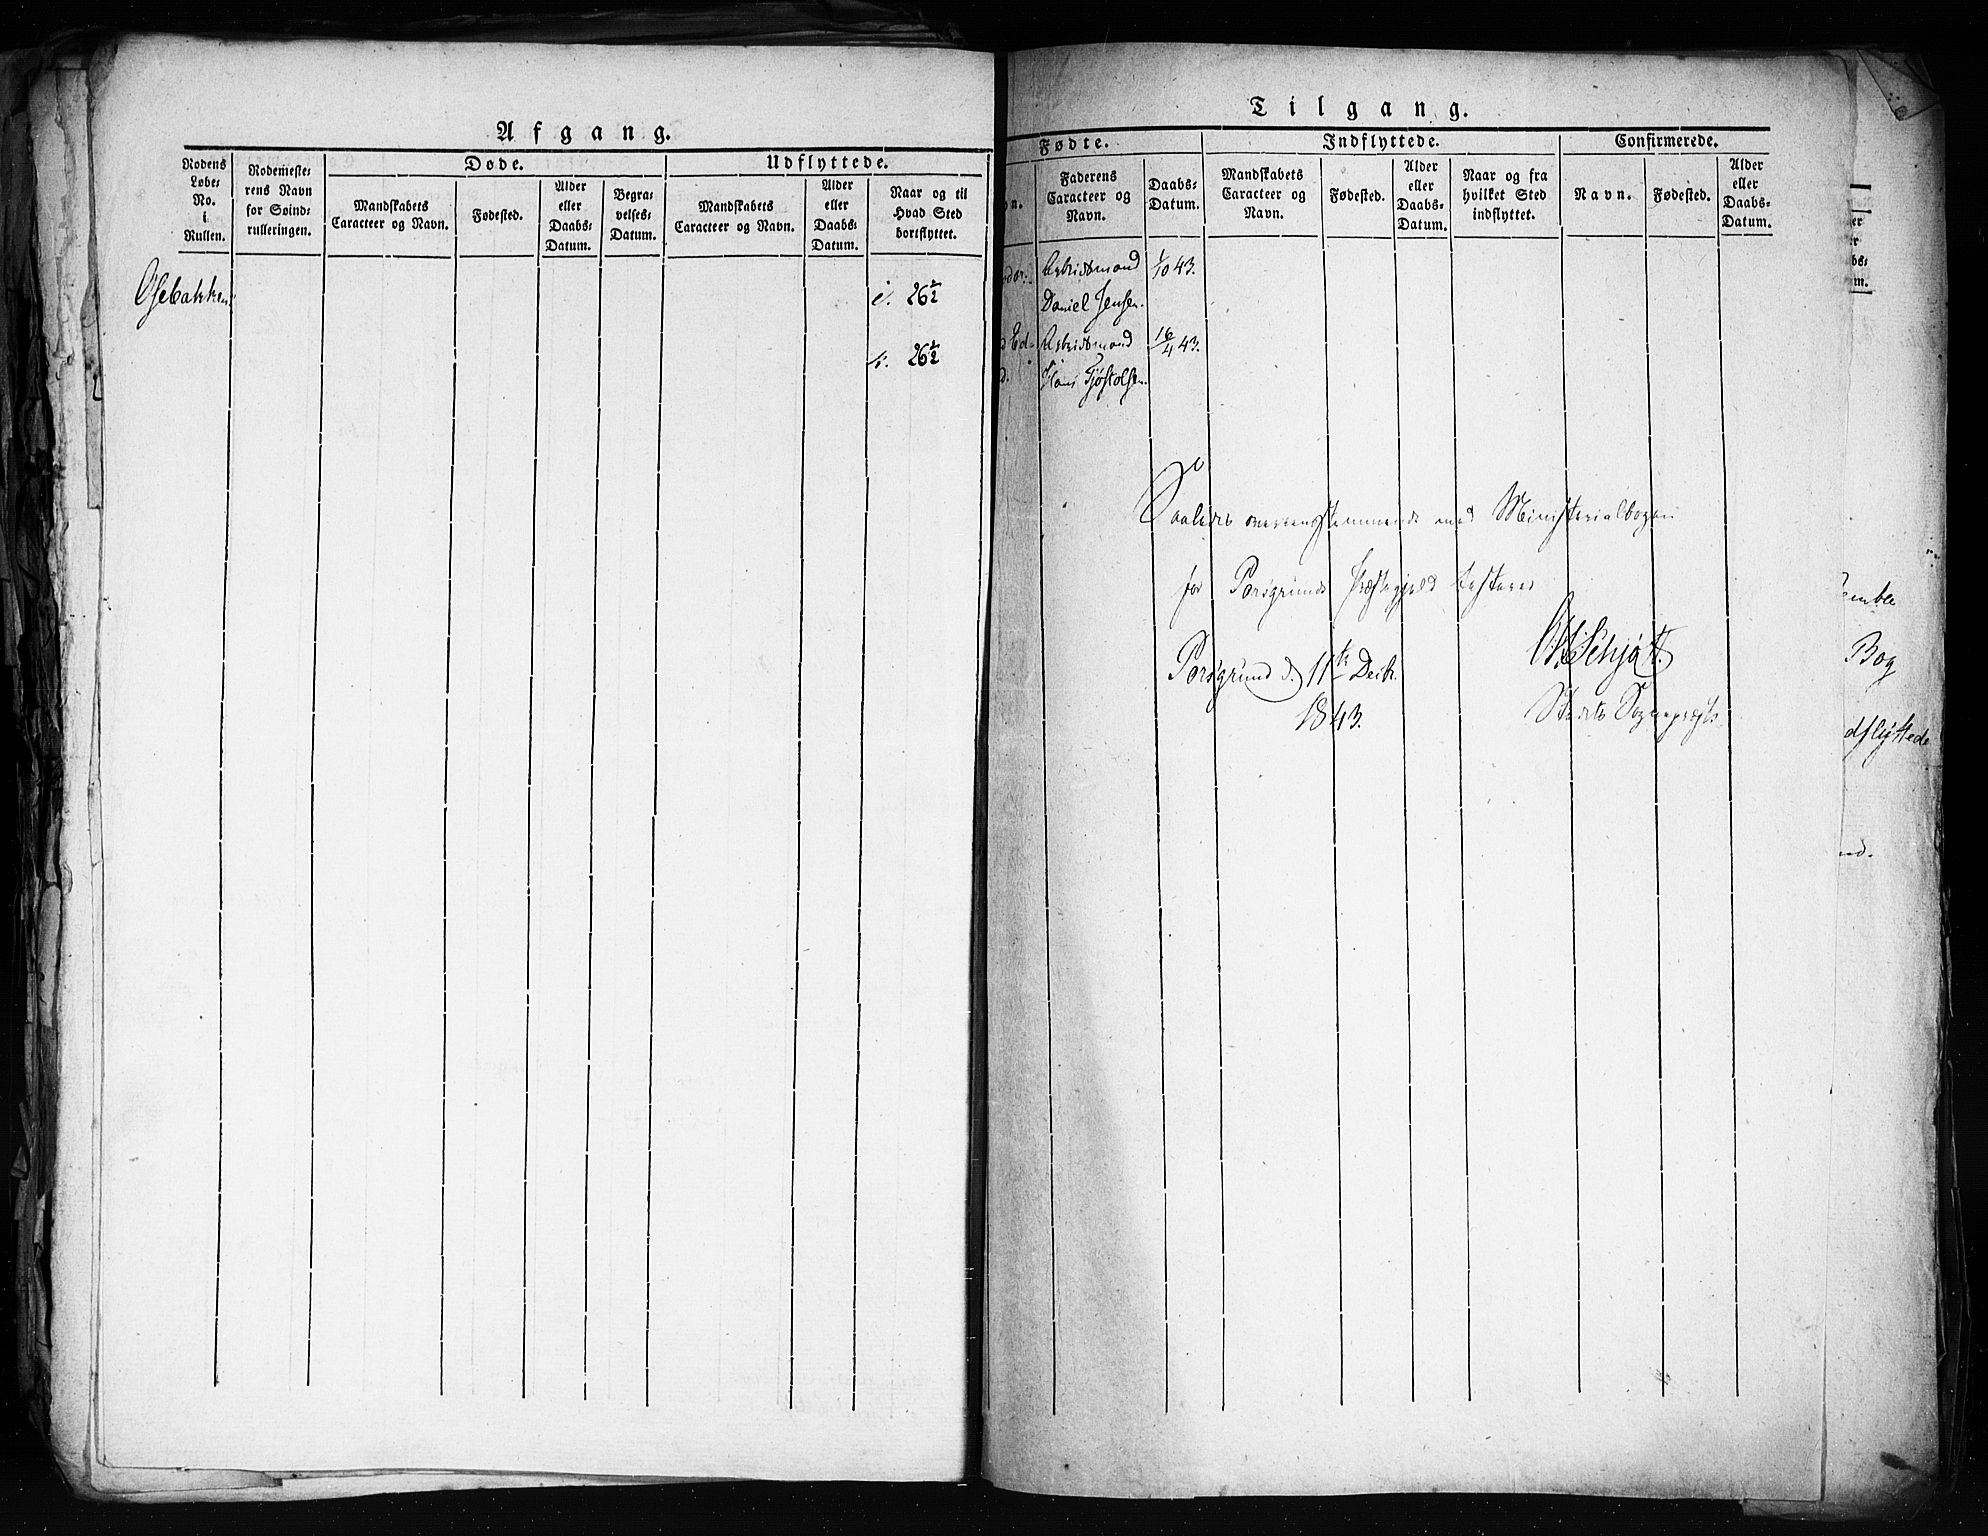 Afgang.
Rodens Løbe-No. i Rullen.
Rodemeste-rens Navn for Søind-rulleringen.
Døde.
Mandskabets Caracteer og Navn.
Fødested.
Alder eller Daabs-Datum.
Begra-velses-Datum.
Udflyttede.
Mandskabets Caracteer og Navn.
Alder eller Daabs-Datum.
Naar og til Hvad Sted bortflyttet.
Osebakken
i. 26½
k. 26½
Tilgang.
Fødte.
Faderens Caracteer og Navn.
Daabs-Datum.
Indflyttede.
Mandskabets Caracteer og Navn.
Fødested.
Alder eller Daabs-Datum.
Naar og fra hvilket Sted indflyttet.
Confirmerede.
Navn.
Fødested.
Alder eller Daabs-Datum.
Arbeidsmand 1/10 43.
Daniel Jensen.
Ed- Arbeidsmand 16/4 43.
Hans Tjøstolsen.
Saaledes overensstemmende med Ministerialbogen
for Porsgrunds Præstegjeld testerer
Porsgrund d. 11te Decbr.
1843.
Schjøtt.
Stedets Sognepræst.
Bog
dflyttede